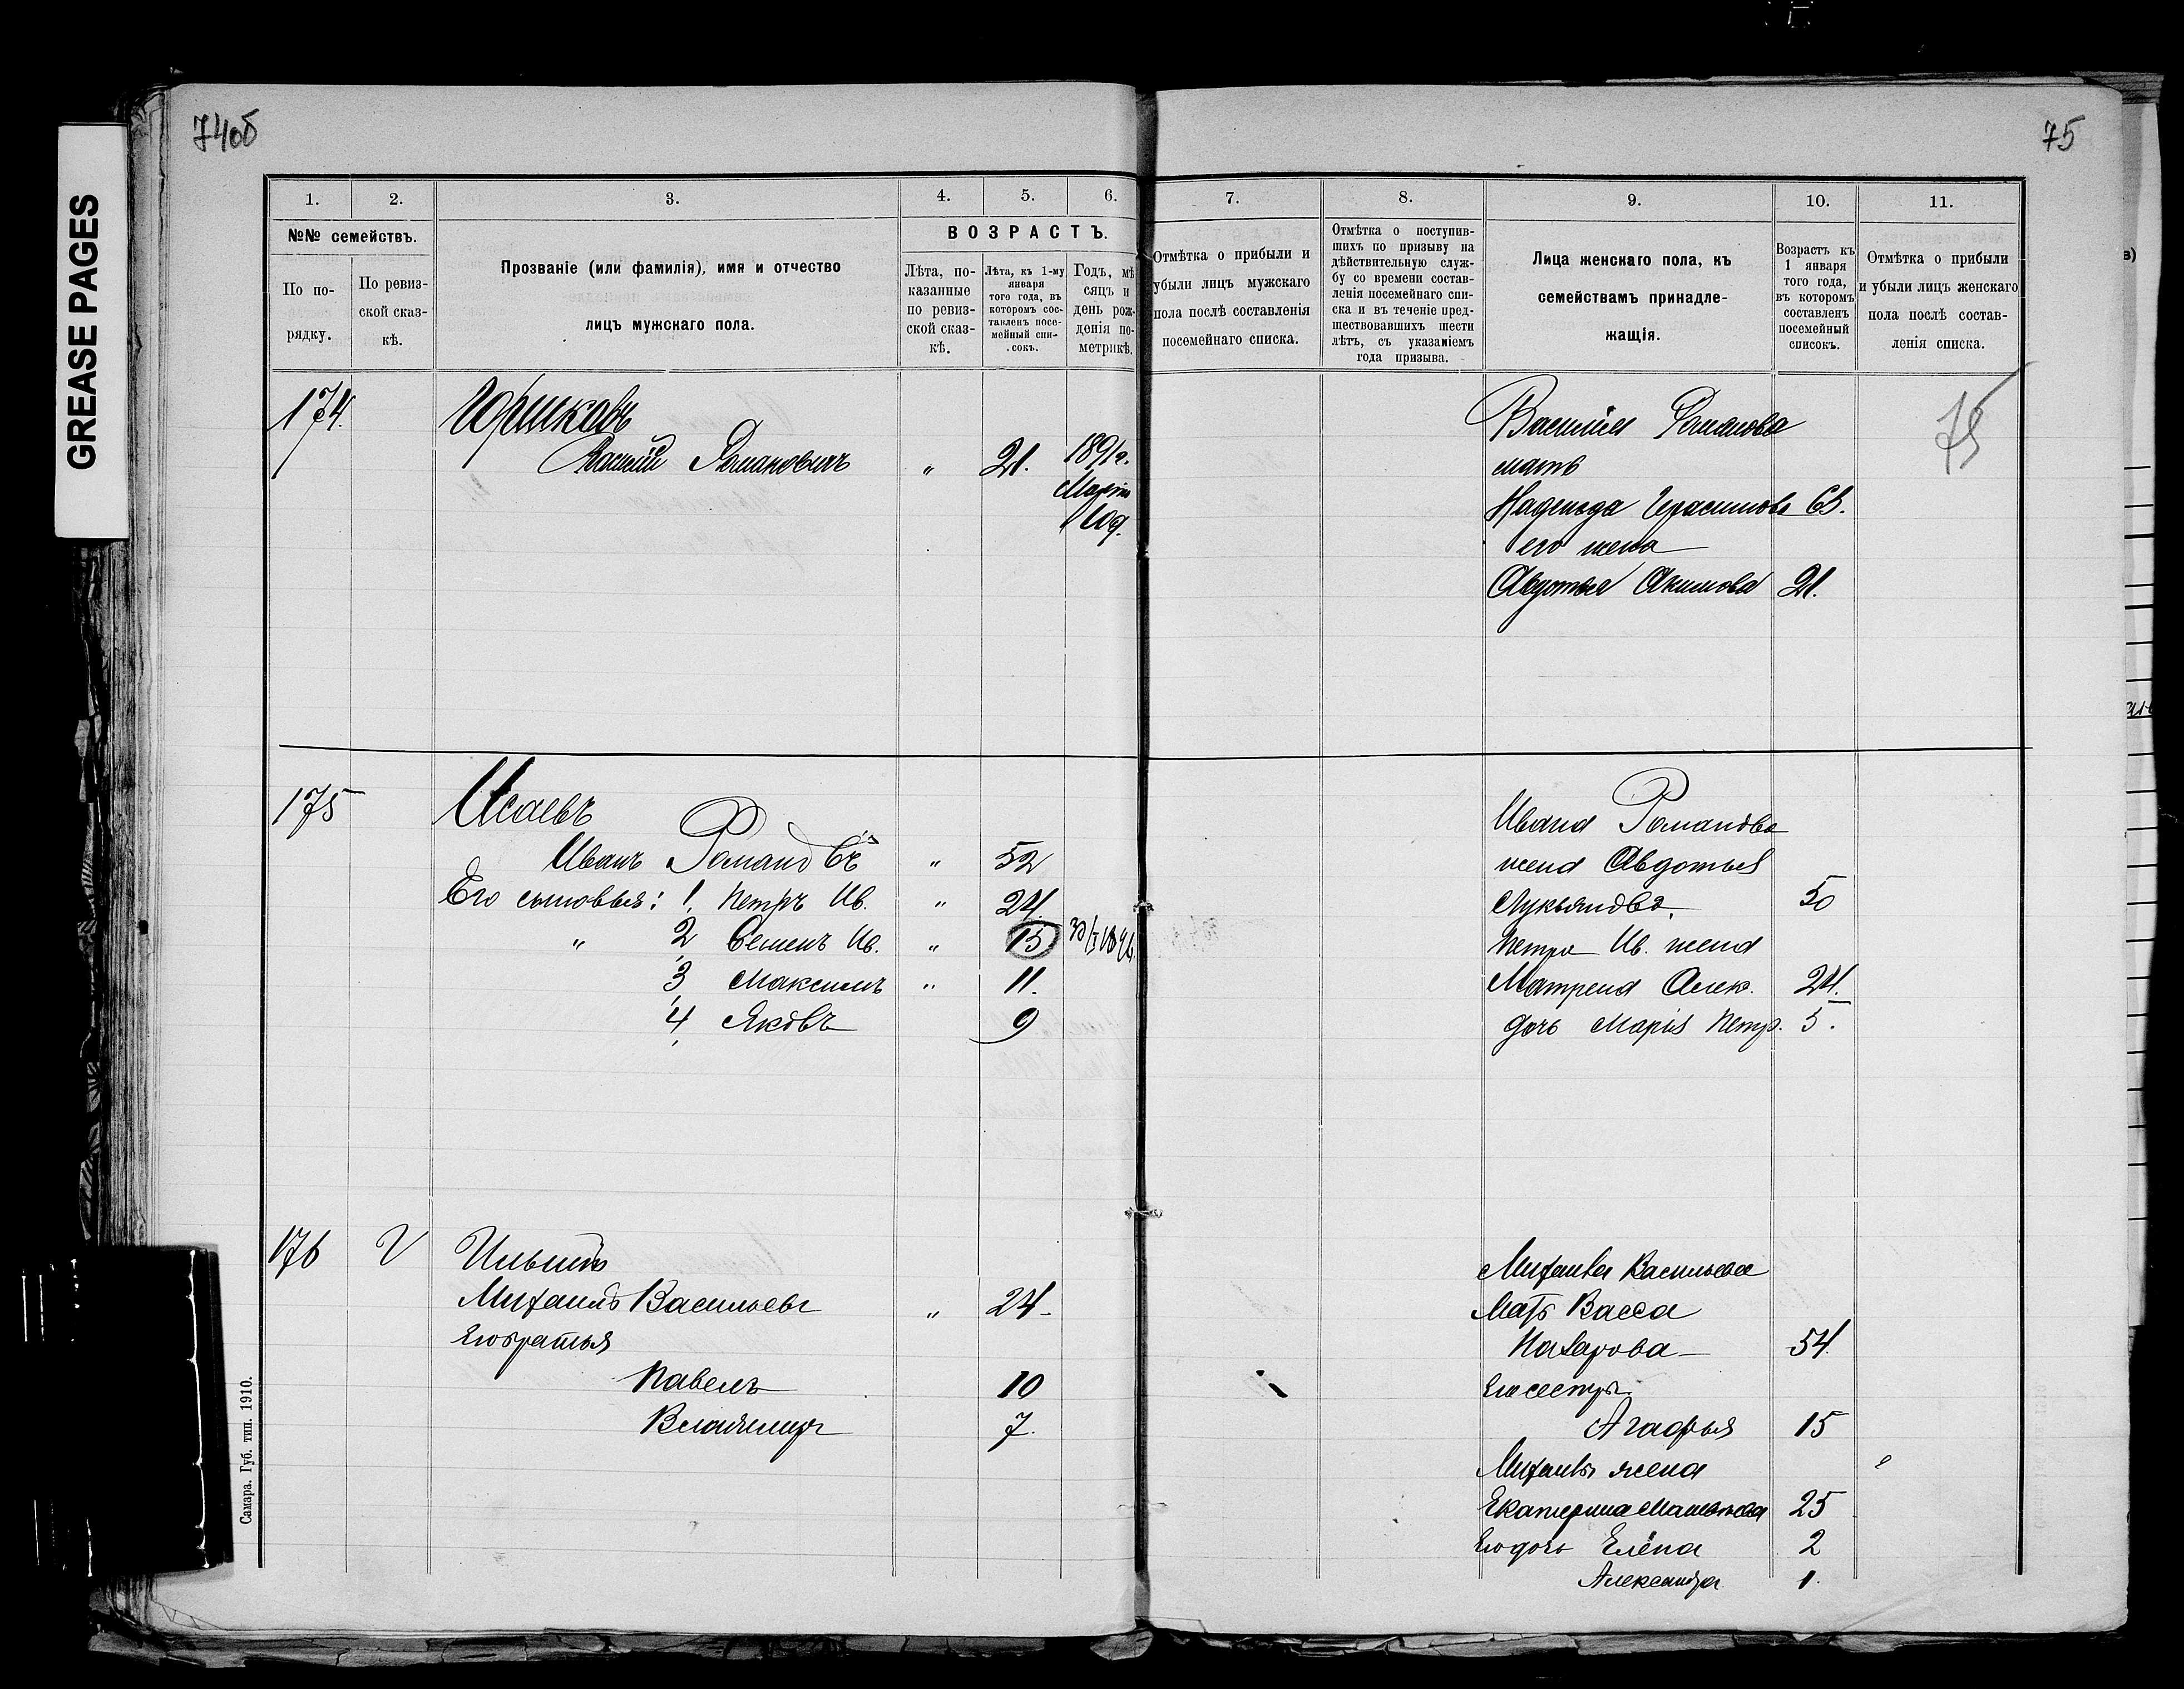 GREASE PAGES
74об
75
1. 2. 3. 4. 5. 6. 7. 8. 9. 10. 11.
№№ семействъ.
По порядку.
По ревизской сказкѣ.
Прозваніе (или фамилія), имя и отчество
лицъ мужскаго пола.
ВОЗРАСТЪ.
Лѣта, показанные по ревизской сказкѣ.
Лѣта, къ 1-му января того года, въ которомъ составленъ посемейный списокъ.
Годъ, мѣсяцъ и день рожденія по метрикѣ.
Отмѣтка о прибыли и
убыли лицъ мужскаго
пола послѣ составленія
посемейнаго списка.
Отмѣтка о поступившихъ по призыву на дѣйствительную службу со времени составленія посемейнаго списка и въ теченіе предшествовавшихъ шести лѣтъ, съ указаніемъ года призыва.
Лица женскаго пола, къ
семействамъ принадле-
жащія.
Возрастъ къ 1 января того года, въ которомъ составленъ посемейный списокъ.
Отмѣтка о прибыли
и убыли лицъ женскаго
пола послѣ состав-
ленія списка.
174. Юршковъ
Василій Романовичъ " 21. 1891г.
Марта
10д.
Василія Романова
75
мать
Надежда Герасимова 63.
его жена
Авдотья Акимова 21.
175 Исаевъ
Иванъ Романовъ " 52
Его сыновья: 1, Петръ Ив. " 24.
" 2, Семенъ Ив. " 15
3, Максимъ " 11.
4, Яковъ 9
Ивана Романова
жена Авдотья
Лукьянова, 50
Петра Ив. жена
Матрена Алек. 24.
дочь Марія Петр. 5.
176 V Ильинъ
Михаилъ Васильевъ " 24-
Его братья
Павелъ 10
Владимиръ 7.
Михаила Васильева
Мать Васса
Назарова 54.
Его сестры
Агафья 15
Михаила жена
Екатерина 25
Его дочь Елена 2
Александра 1.
Самара. Губ. тип. 1910.